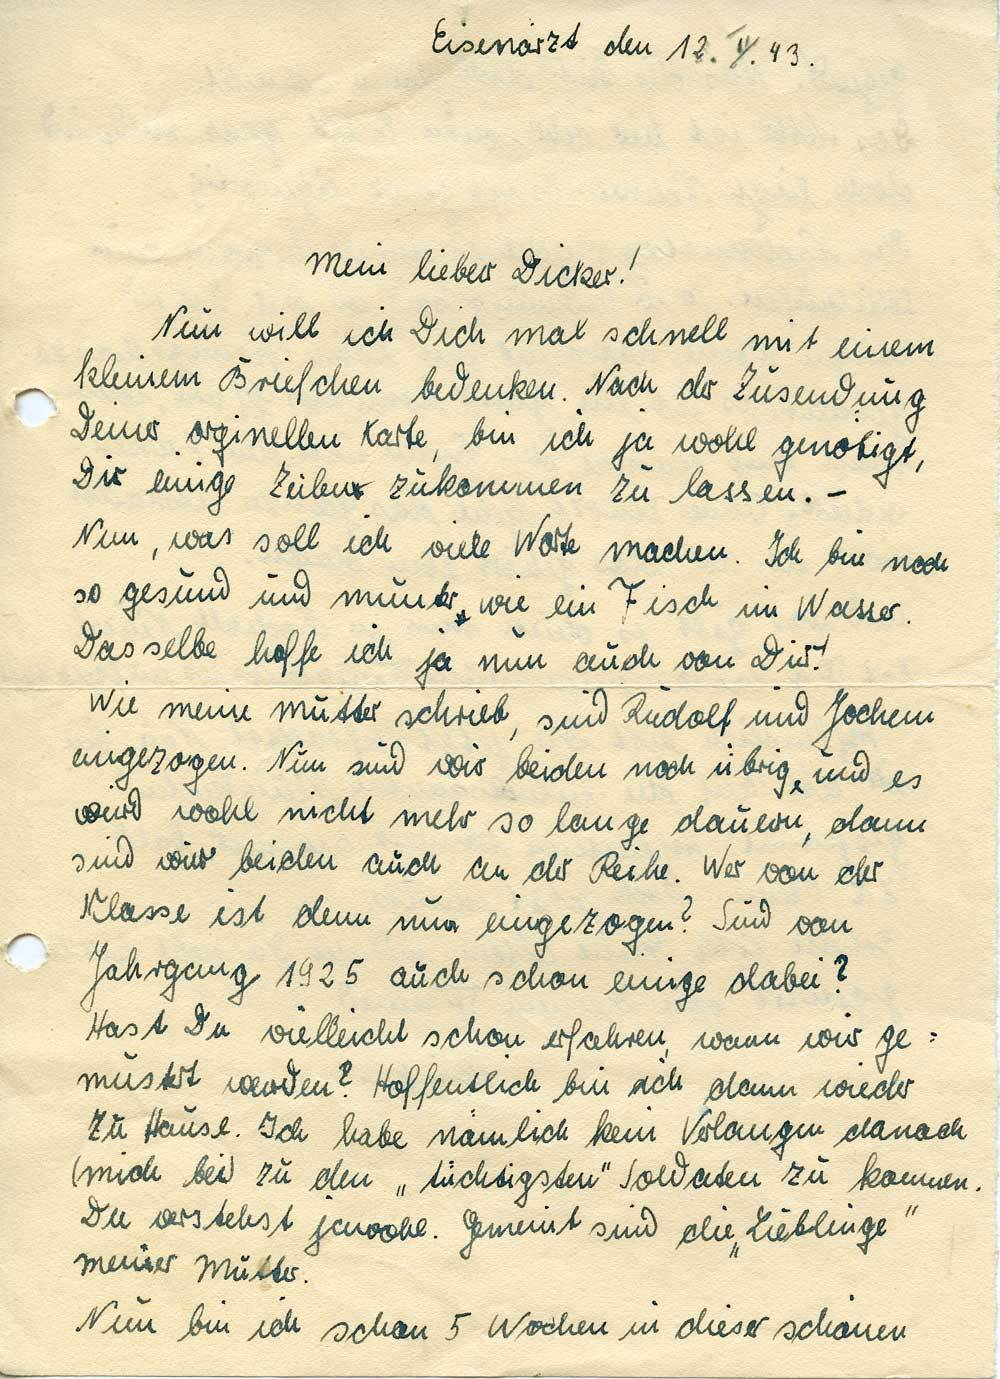 Eisenärzt den 12. V. 43.
Mein lieber Dicker!
Nun will ich Dich mal schnell mit einem
kleinem Briefchen bedenken. Nach der Zusendung
Deiner orginellen Karte, bin ich ja wohl genötigt,
Dir einige Zeilen zukommen zu lassen. –
Nun, was soll ich viele Worte machen. Ich bin noch
so gesund und munter, wie ein Fisch im Wasser.
Dasselbe hoffe ich ja nun auch von Dir!
Wie meine Mutter schrieb, sind Rudolf und Jochem
eingezogen. Nun sind wir beiden noch übrig, und es
wird wohl nicht mehr so lange dauern, dann
sind wir beiden auch an der Reihe. Wer von der
Klasse ist denn nun eingezogen? Sind von
Jahrgang 1925 auch schon einige dabei?
Hast Du vielleicht schon erfahren, wann wir ge=
mustert werden? Hoffentlich bin ich dann wieder
zu Hause. Ich habe nämlich kein Verlangen danach
(mich bei) zu den „tüchtigsten" Soldaten zu kommen.
Du verstehst jawohl. Gemeint sind die „Lieblinge"
meiner Mutter.
Nun bin ich schon 5 Wochen in dieser schönen